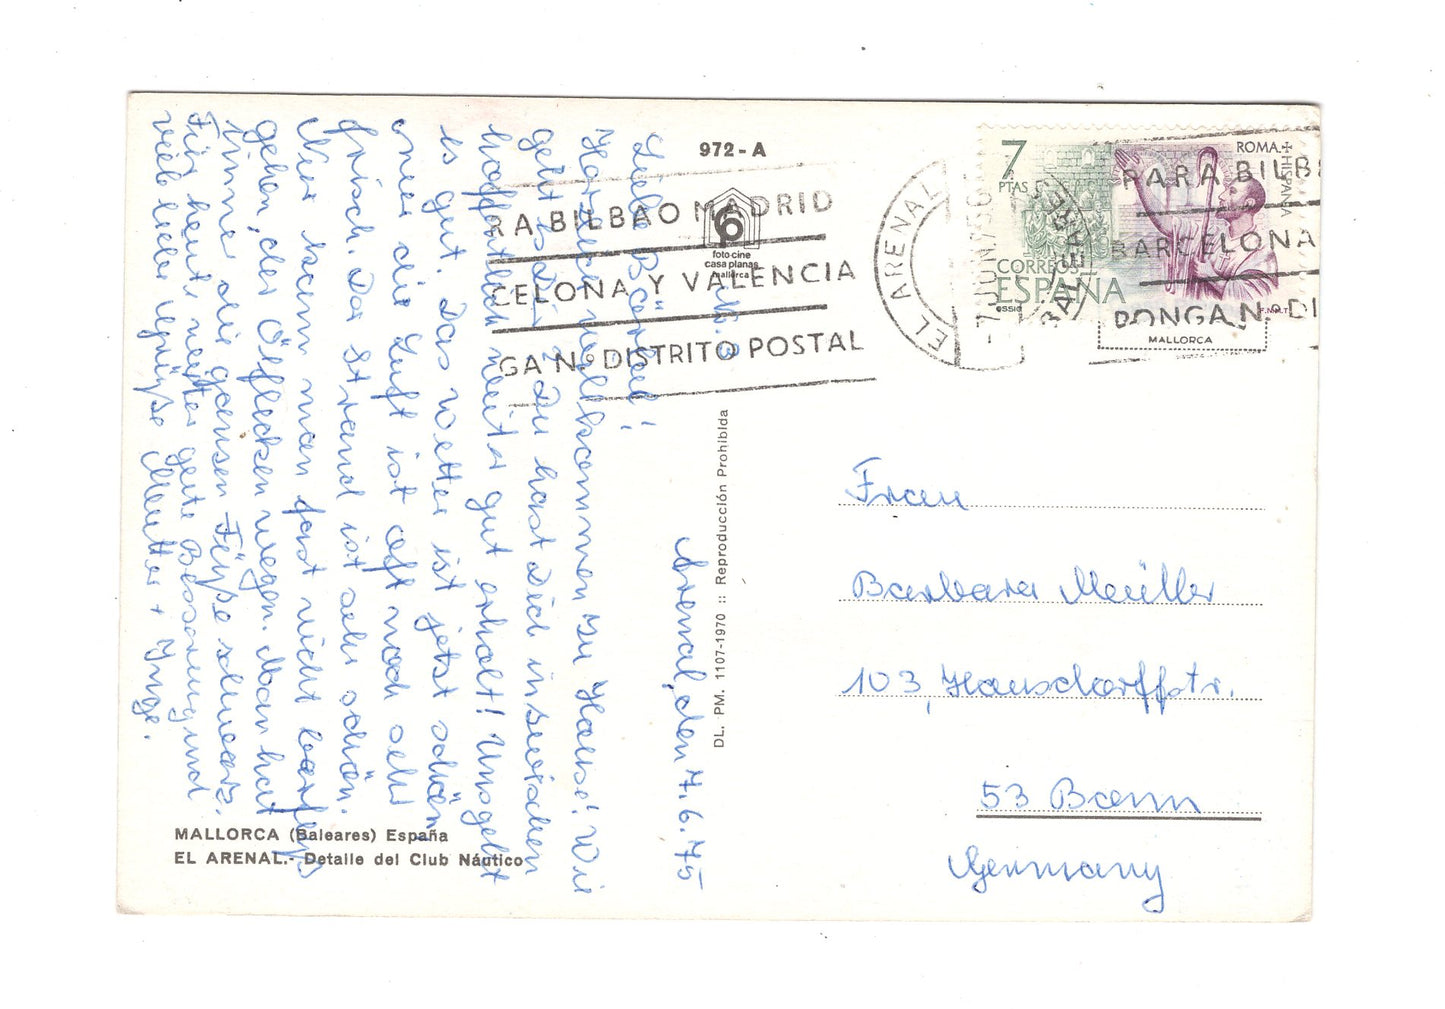 972-A
foto-cine
casa planas
mallorca
RA BILBAO MADRID
CELONA Y VALENCIA
GA Nº DISTRITO POSTAL
EL ARENAL
BALEARES
7 JUN. 75
7
PTAS
ROMA + HISPANIA
CORREOS
ESPAÑA
F.N.M.T.
PARA BILB
BARCELONA
PONGA N.º DI
MALLORCA
No. 3
Arenal, den 7.6.75
Liebe Bärbel!
Herzlich willkommen zu Hause! Wie
geht es dir? Du hast Dich inzwischen
hoffentlich weiter gut erholt! Uns geht
es gut. Das Wetter ist jetzt schön
nur die Luft ist oft noch sehr
frisch. Der Strand ist sehr schön.
Nur kann man fast nicht barfuß
gehen, der Ölflecken wegen. Man hat
immer die ganzen Füße schwarz.
Für heute weiter gute Besserung und
viele liebe Grüße Mutter + Inge.
DL. PM. 1107-1970 :: Reproducción Prohibida
Frau
Barbara Müller
103, Hausdorffstr.
53 Bonn
Germany
MALLORCA (Baleares) España
EL ARENAL.- Detalle del Club Náutico